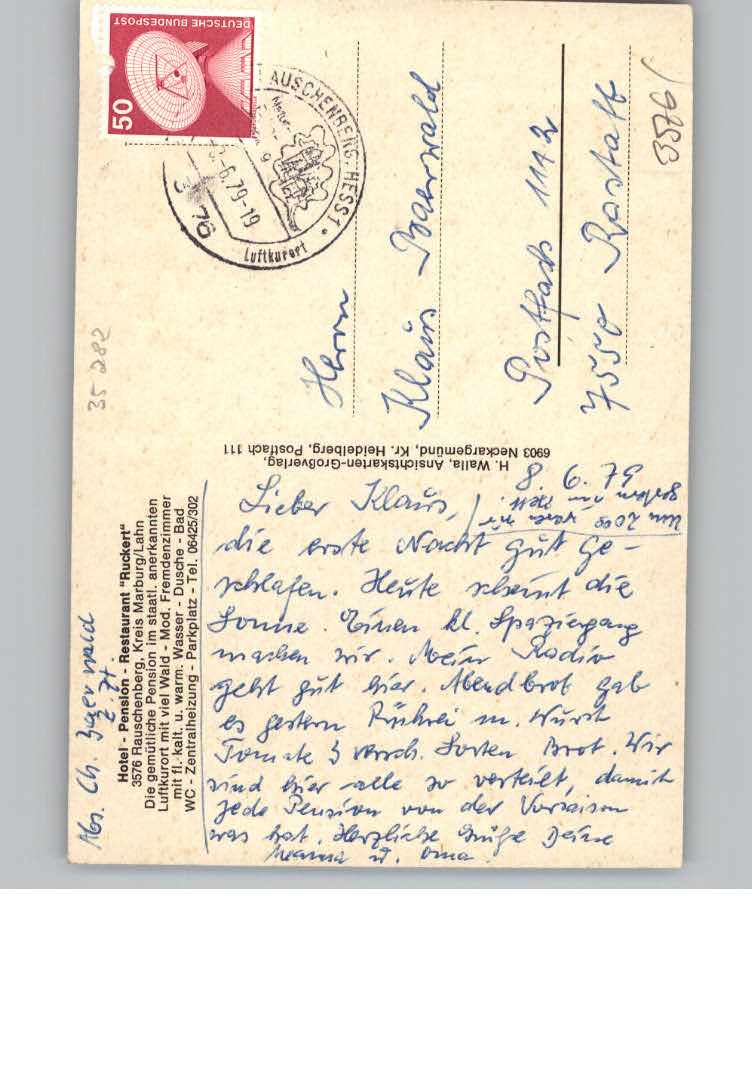 DEUTSCHE BUNDESPOST
50
RAUSCHENBERG, HESS 1
-6.79-19
Luftkurort
Herrn
Klaus Baerwald
Postfach 1142
7550 Rastatt
3576
35 282
H. Walla, Ansichtskarten-Großverlag,
6903 Neckargemünd, Kr. Heidelberg, Postfach 111
Abs. Ch. Baerwald
z. Zt.
Hotel - Pension - Restaurant "Ruckert"
3576 Rauschenberg, Kreis Marburg/Lahn
Die gemütliche Pension im staatl. anerkannten
Luftkurort mit viel Wald - Mod. Fremdenzimmer
mit fl. kalt. u. warm. Wasser - Dusche - Bad
WC - Zentralheizung - Parkplatz - Tel. 06425/302
8. 6. 79
Lieber Klaus,
die erste Nacht gut ge-
schlafen. Heute scheint die
Sonne. Einen kl. Spaziergang
machen wir. Mein Radio
geht gut hier. Abendbrot gab
es gestern Rührei m. Wurst
Tomate 3 versch. Sorten Brot. Wir
sind hier alle so verteilt, damit
jede Pension von der Vorsaison
was hat. Herzliche Grüße Deine
Mama u. Oma.
Um 20 00 waren wir
gestern im Bett.